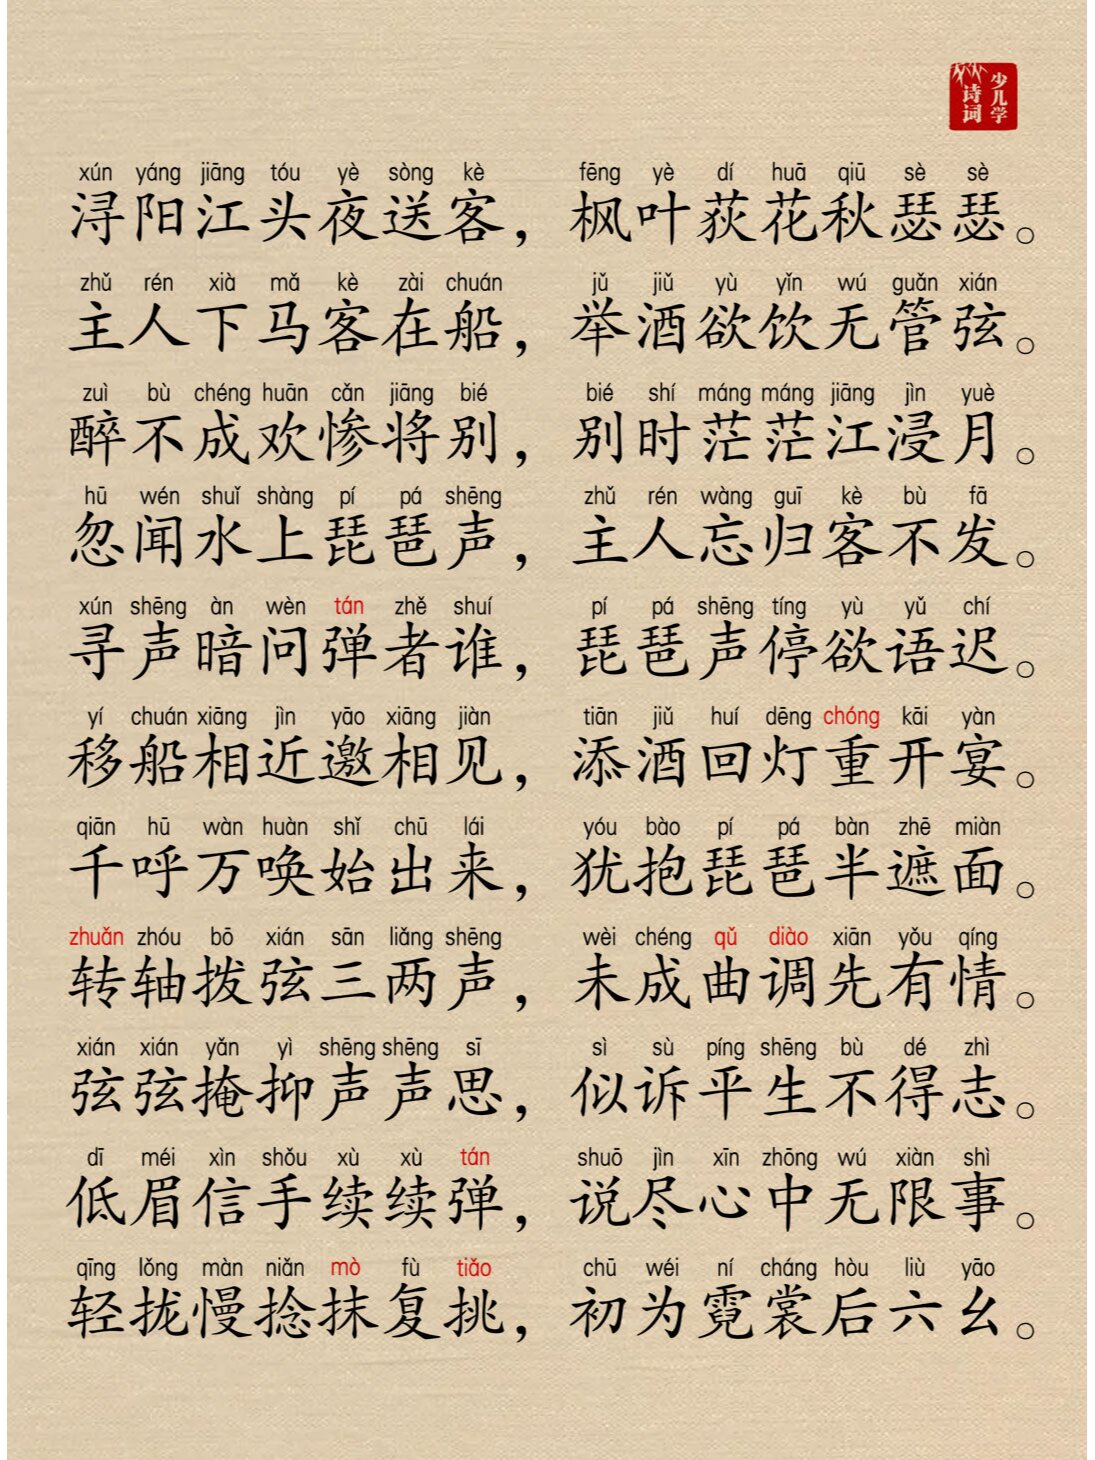 少儿学
诗词
xún yáng jiāng tóu yè sòng kè fēng yè dí huā qiū sè sè
浔阳江头夜送客，枫叶荻花秋瑟瑟。
zhǔ rén xià mǎ kè zài chuán jǔ jiǔ yù yǐn wú guǎn xián
主人下马客在船，举酒欲饮无管弦。
zuì bù chéng huān cǎn jiāng bié bié shí máng máng jiāng jìn yuè
醉不成欢惨将别，别时茫茫江浸月。
hū wén shuǐ shàng pí pá shēng zhǔ rén wàng guī kè bù fā
忽闻水上琵琶声，主人忘归客不发。
xún shēng àn wèn tán zhě shuí pí pá shēng tíng yù yǔ chí
寻声暗问弹者谁，琵琶声停欲语迟。
yí chuán xiāng jìn yāo xiāng jiàn tiān jiǔ huí dēng chóng kāi yàn
移船相近邀相见，添酒回灯重开宴。
qiān hū wàn huàn shǐ chū lái yóu bào pí pá bàn zhē miàn
千呼万唤始出来，犹抱琵琶半遮面。
zhuǎn zhóu bō xián sān liǎng shēng wèi chéng qǔ diào xiān yǒu qíng
转轴拨弦三两声，未成曲调先有情。
xián xián yǎn yì shēng shēng sī sì sù píng shēng bù dé zhì
弦弦掩抑声声思，似诉平生不得志。
dī méi xìn shǒu xù xù tán shuō jìn xīn zhōng wú xiàn shì
低眉信手续续弹，说尽心中无限事。
qīng lǒng màn niǎn mò fù tiǎo chū wéi ní cháng hòu liù yāo
轻拢慢捻抹复挑，初为霓裳后六幺。